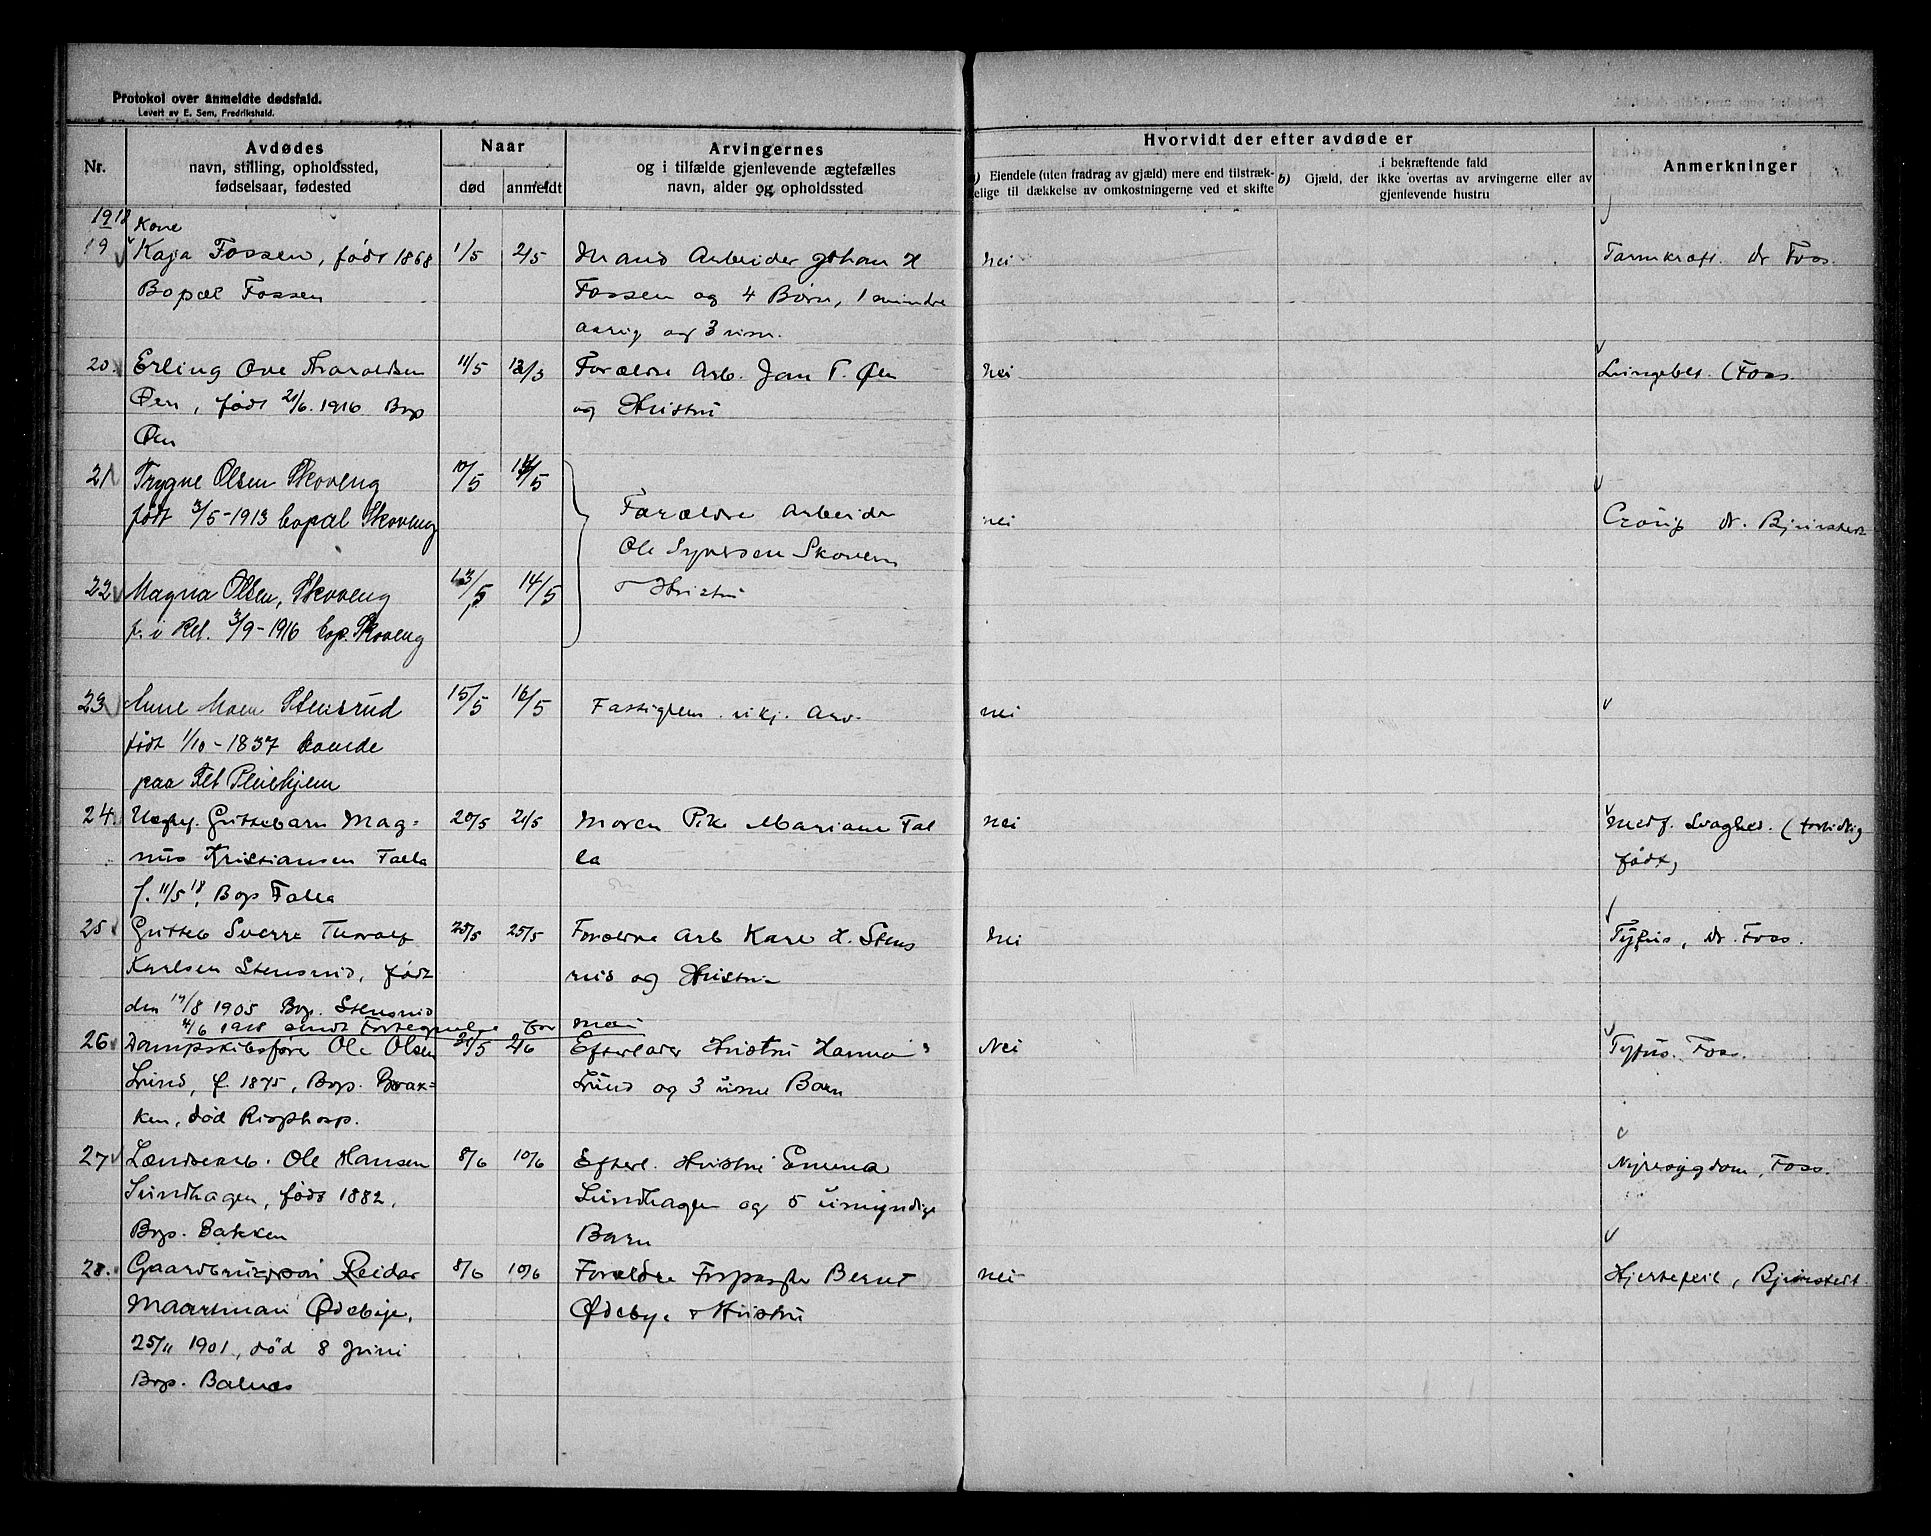 Protokol over anmeldte dødsfald.
Levert av E. Sem, Fredrikshald.
Nr.
Avdødes
navn, stilling, opholdssted,
fødselsaar, fødested
Naar
død
anmeldt
Arvingernes
og i tilfælde gjenlevende ægtefælles
navn, alder og opholdssted
Hvorvidt der efter avdøde er
a) Eiendele (uten fradrag av gjæld) mere end tilstræk-
kelige til dækkelse av omkostningerne ved et skifte
b) Gjæld, der
i bekræftende fald
ikke overtas av arvingerne eller av
gjenlevende hustru
Anmerkninger
1918
Kone
19 Kaja Fossen, født 1868 1/5 2/5 Mand Arbeider Johan H nei Tarmkræft. Dr Foss.
Bopæl Fossen Fossen og 4 Børn, 1 mindre
aarig og 3 um.
20. Erling Ove Haraldsen 11/5 Forældre Arb. Jan T. Øen nei Lungebet. (Foss.
Øen, født 21/6. 1916 Bop og Hustru
Øen
21 Trygve Olsen Skoveng 10/5 14/5
født 3/5-1913 bopæl Skoveng Forældre Arbeider nei Croup dr. Bjørnstedt
Ole Syversen Skoveng
22 Magna Olsen, Skoveng 13/5 14/5 & Hustru
f. i Rel. 3/9-1916 bop. Skoveng
23 Anne Moen Stensrud 15/5 16/5 Fattiglem. nei
født 1/10-1837 boende
paa Pleiehjem
24. Uegte. Guttebarn Mag- 20/5 21/5 Moren Pike Mariane Fal nei Medf. Svaghed. (fortidlig
nus Kristiansen Falla la født,
f. 11/5 18, Bop Falla
25 Gutteb Sverre Thoralf 25/5 Forældre Arb Karl H. Stens nei Tyfus, Dr. Foss.
Karlsen Stensrud, født rud og Hustru
den 19/8 1905 Bop. Stensrud
4/6 1918 sendt Fortegnelse for mai
26 Dampskibsfører Ole Olsen 2/6 Efterlader Hustru Hanna Nei Tyfus. Foss.
Lund, f. 1875, Bop. Brak- Lund og 3 Barn
ken, død Rigshosp.
27 Landarb. Ole Hansen 8/6 10/6 Efterl. Hustru Emma Nyresygdom, Foss.
Lundhagen, født 1882, Lundhagen og 5 umyndige
Bop. Bakken Barn
28. Gaardbrugersøn Reidar 8/6 10/6 Forældre Forpagter Bernt nei Hjertefeil, Bjørnstedt.
Maartman Ødebye, Ødebye & Hustru
25/11 1901, død 8 Juni
Bop. Balnes